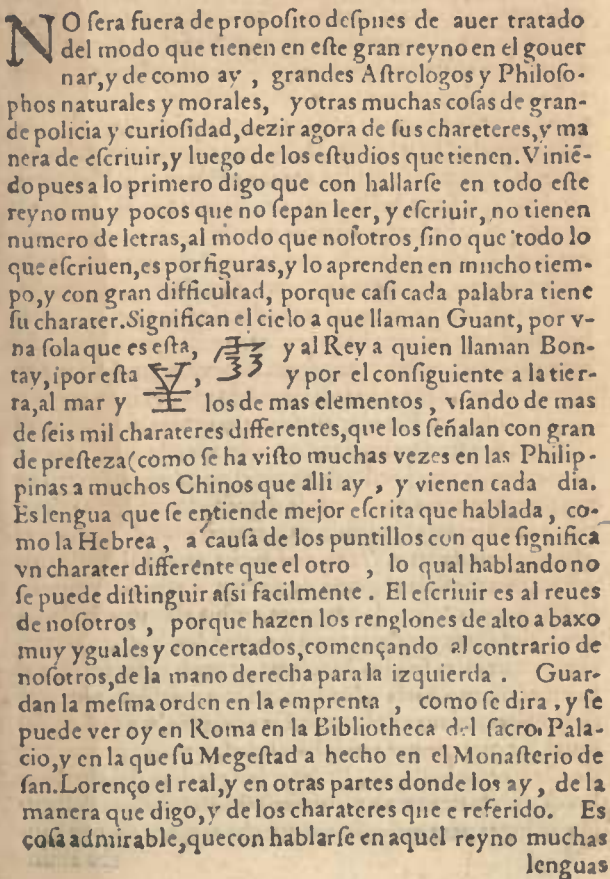 NO ſera fuera de propoſito deſpues de auer tratado
del modo que tienen en eſte gran reyno en el gouer
nar, y de como ay , grandes Aſtrologos y Philoſo-
phos naturales y morales, yotras muchas coſas de gran-
de policia y curioſidad, dezir agora de ſus chareteres, y ma
nera de eſcriuir, y luego de los eſtudios que tienen. Viniẽ-
do pues a lo primero digo que con hallarſe en todo eſte
reyno muy pocos que no ſepan leer, y eſcriuir, no tienen
numero de letras, al modo que noſotros, ſino que todo lo
que eſcriuen, es por figuras, y lo aprenden en mucho tiem-
po, y con gran difficultad, porque caſi cada palabra tiene
ſu charater. Significan el cielo a que llaman Guant, por v-
na ſola que es eſta, y al Rey a quien llaman Bon-
tay, ipor eſta , y por el conſiguiente a la tier-
ra, al mar y los de mas elementos , vſando de mas
de ſeis mil charateres differentes, que los ſeñalan con gran
de preſteza (como ſe ha viſto muchas vezes en las Philip-
pinas a muchos Chinos que alli ay , y vienen cada dia.
Es lengua que ſe entiende mejor eſcrita que hablada, co-
mo la Hebrea , a cauſa de los puntillos con que ſignifica
vn charater differente que el otro , lo qual hablando no
ſe puede diſtinguir aſsi facilmente . El eſcriuir es al reues
de noſotros , porque hazen los renglones de alto a baxo
muy yguales y concertados, començando al contrario de
noſotros, de la mano derecha para la izquierda . Guar-
dan la meſma orden en la emprenta , como ſe dira , y ſe
puede ver oy en Roma en la Bibliotheca del ſacro. Pala-
cio, y en la que ſu Megeſtad a hecho en el Monaſterio de
ſan. Lorenço el real, y en otras partes donde los ay , de la
manera que digo, y de los charateres que e referido. Es
coſa admirable, quecon hablarſe en aquel reyno muchas
lenguas